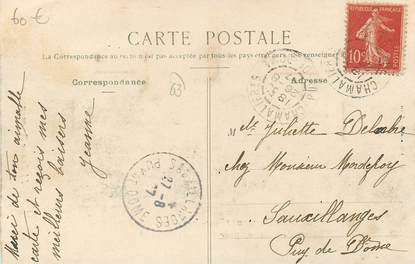 60 €
CARTE POSTALE
La Correspondance au recto n'est pas acceptée par tous les pays étrangers (se renseigner
Correspondance
Adresse
63
RÉPUBLIQUE FRANÇAISE
10
POSTES
CHAMALIÈRES
Merci de ton aimable
carte et reçois mes
meilleurs baisers
Jeanne
Mlle Juliette Delabre
chez Monsieur Mondefroy
Sauxillanges
Puy de Dôme
SAUXILLANGES
PUY-DE-DÔME
27-8